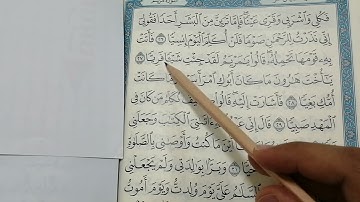 فَكُلِي وَٱشْرَبِي وَقَرِّي عَيْنًا فَإِمَّا تَرَيِنَّ مِنَ ٱلْبَشَرِ أَحَدًا فَقُولِي
إِنِّي نَذَرْتُ لِلرَّحْمَٰنِ صَوْمًا فَلَنْ أُكَلِّمَ ٱلْيَوْمَ إِنسِيًّا ٢٦ فَأَتَتْ
بِهِۦ قَوْمَهَا تَحْمِلُهُۥ قَالُوا۟ يَٰمَرْيَمُ لَقَدْ جِئْتِ شَيْـًٔا فَرِيًّا ٢٧
يَٰٓأُخْتَ هَٰرُونَ مَا كَانَ أَبُوكِ ٱمْرَأَ كَانَتْ
أُمُّكِ بَغِيًّا ٢٨ فَأَشَارَتْ إِلَيْهِ قَالُوا۟ نُكَلِّمُ مَن كَانَ فِي
ٱلْمَهْدِ صَبِيًّا ٢٩ قَالَ إِنِّي عَبْدُ ٱللَّهِ ٱلْكِتَٰبَ وَجَعَلَنِي
أَيْنَ مَا كُنتُ وَأَوْصَٰنِي بِٱلصَّلَوٰةِ
وَبَرًّۢا بِوَٰلِدَتِي وَلَمْ يَجْعَلْنِي
وَٱلسَّلَٰمُ عَلَيَّ يَوْمَ وُلِدتُّ وَيَوْمَ أَمُوتُ